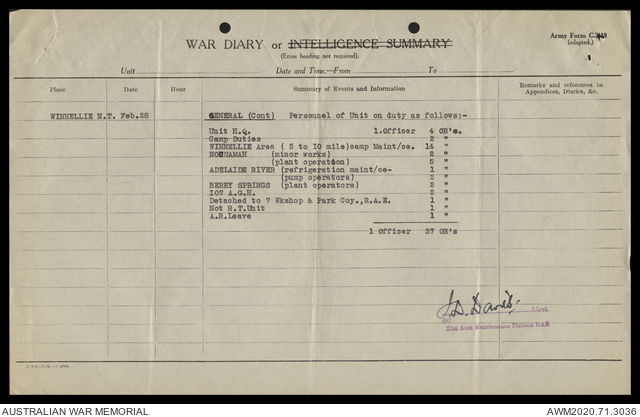 WAR DIARY or INTELLIGENCE SUMMARY
Army Form C.2118
(adapted.)
(Erase heading not required).
Unit Date and Time.—From To
Place Date Hour Summary of Events and Information Remarks and references to
Appendices, Diaries, &c.
WINNELLIE N.T. Feb.28 GENERAL (Cont) Personnel of Unit on duty as follows:-
Unit H.Q. 1.Officer 4 OR's.
Camp Duties 2 "
WINNELLIE Area ( 5 to 10 mile)camp Maint/ce. 14 "
NOONAMAH (minor works) 2 "
(plant operation) 5 "
ADELAIDE RIVER (refrigeration maint/ce- 1 "
(pump operators) 2 "
BERRY SPRINGS (plant operators) 2 "
107 A.G.H. 2 "
Detached to 7 Wkshop & Park Coy.,R.A.E. 1 "
Not R.T.Unit 1 "
A.R.Leave 1 "
1 Officer 37 OR's
J.D. Davis. Lieut.
OC
Aust Maintenance Platoon RAE
AUSTRALIAN WAR MEMORIAL
AWM2020.71.3036